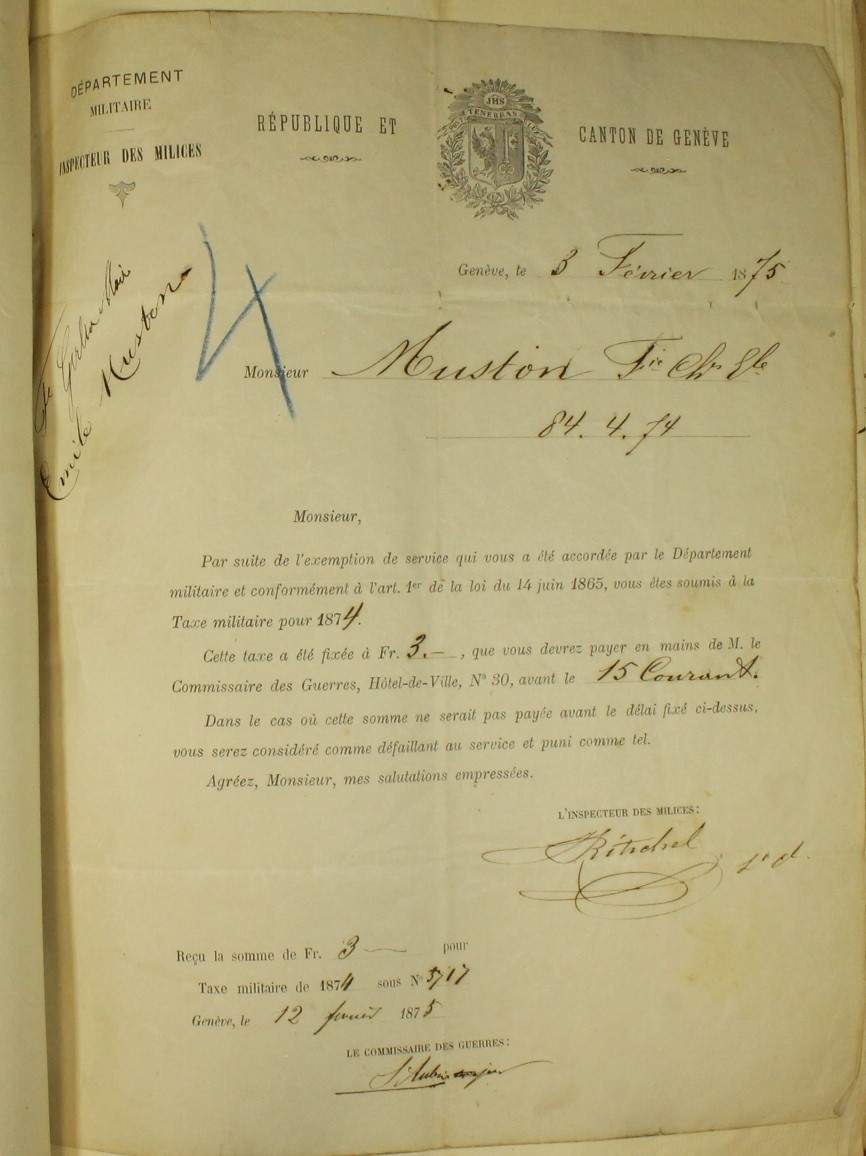 DÉPARTEMENT
MILITAIRE
INSPECTEUR DES MILICES
RÉPUBLIQUE ET
JHS
TENEBRAS
CANTON DE GENÈVE
Genève, le 3 Février 1875
4
Emile Muston
Monsieur Muston
84. 4. 74
Monsieur,
Par suite de l'exemption de service qui vous a été accordée par le Département
militaire et conformément à l'art. 1er de la loi du 14 juin 1865, vous êtes soumis à la
Taxe militaire pour 1874.
Cette taxe a été fixée à Fr. 3.—, que vous devrez payer en mains de M. le
Commissaire des Guerres, Hôtel-de-Ville, N° 30, avant le 15 Courant.
Dans le cas où cette somme ne serait pas payée avant le délai fixé ci-dessus,
vous serez considéré comme défaillant au service et puni comme tel.
Agréez, Monsieur, mes salutations empressées.
L'INSPECTEUR DES MILICES:
Reçu la somme de Fr. 3 — pour
Taxe militaire de 1874 sous N° 5717
Genève, le 12 fevrier 1875
LE COMMISSAIRE DES GUERRES: